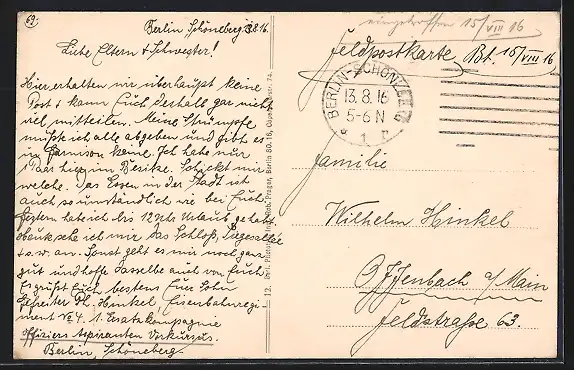 63.
Berlin Schöneberg 13.8.16.
Liebe Eltern & Schwester!
Hier erhalten wir überhaupt keine
Post & kann Euch deshalb gar nicht
viel mitteilen. Meine Strümpfe
mußte ich alle abgeben und gibt es
in Garnison keine. Ich habe nur
1 Paar hier im Besitze. Schickt mir
welche. Das Essen in der Stadt ist
auch so umständlich wie bei Euch.
Gestern hatte ich bis 12 Uhr Urlaub gehabt
Heute sehe ich mir das Schloß, Siegesallee
u.s.w. an. Sonst geht es mir noch ganz
gut und hoffe dasselbe auch von Euch
Es grüßt Euch bestens Euer Sohn
Gefreiter Ph. Hinkel Eisenbahnregi-
ment No 4. 1. Ersatzkompagnie
Offiziers Aspiranten Vorkursus.
Berlin, Schöneberg.
12. Orig. Photogr. Rob. Prager, Berlin SO. 16, Str. 74.
eingetroffen 15/VIII 16
Feldpostkarte
Bt. 15/VIII 16
BERLIN-SCHÖNEBERG
13.8.16
5-6 N
* 1
Familie
Wilhelm Hinkel
Offenbach a/Main
Feldstraße 63.